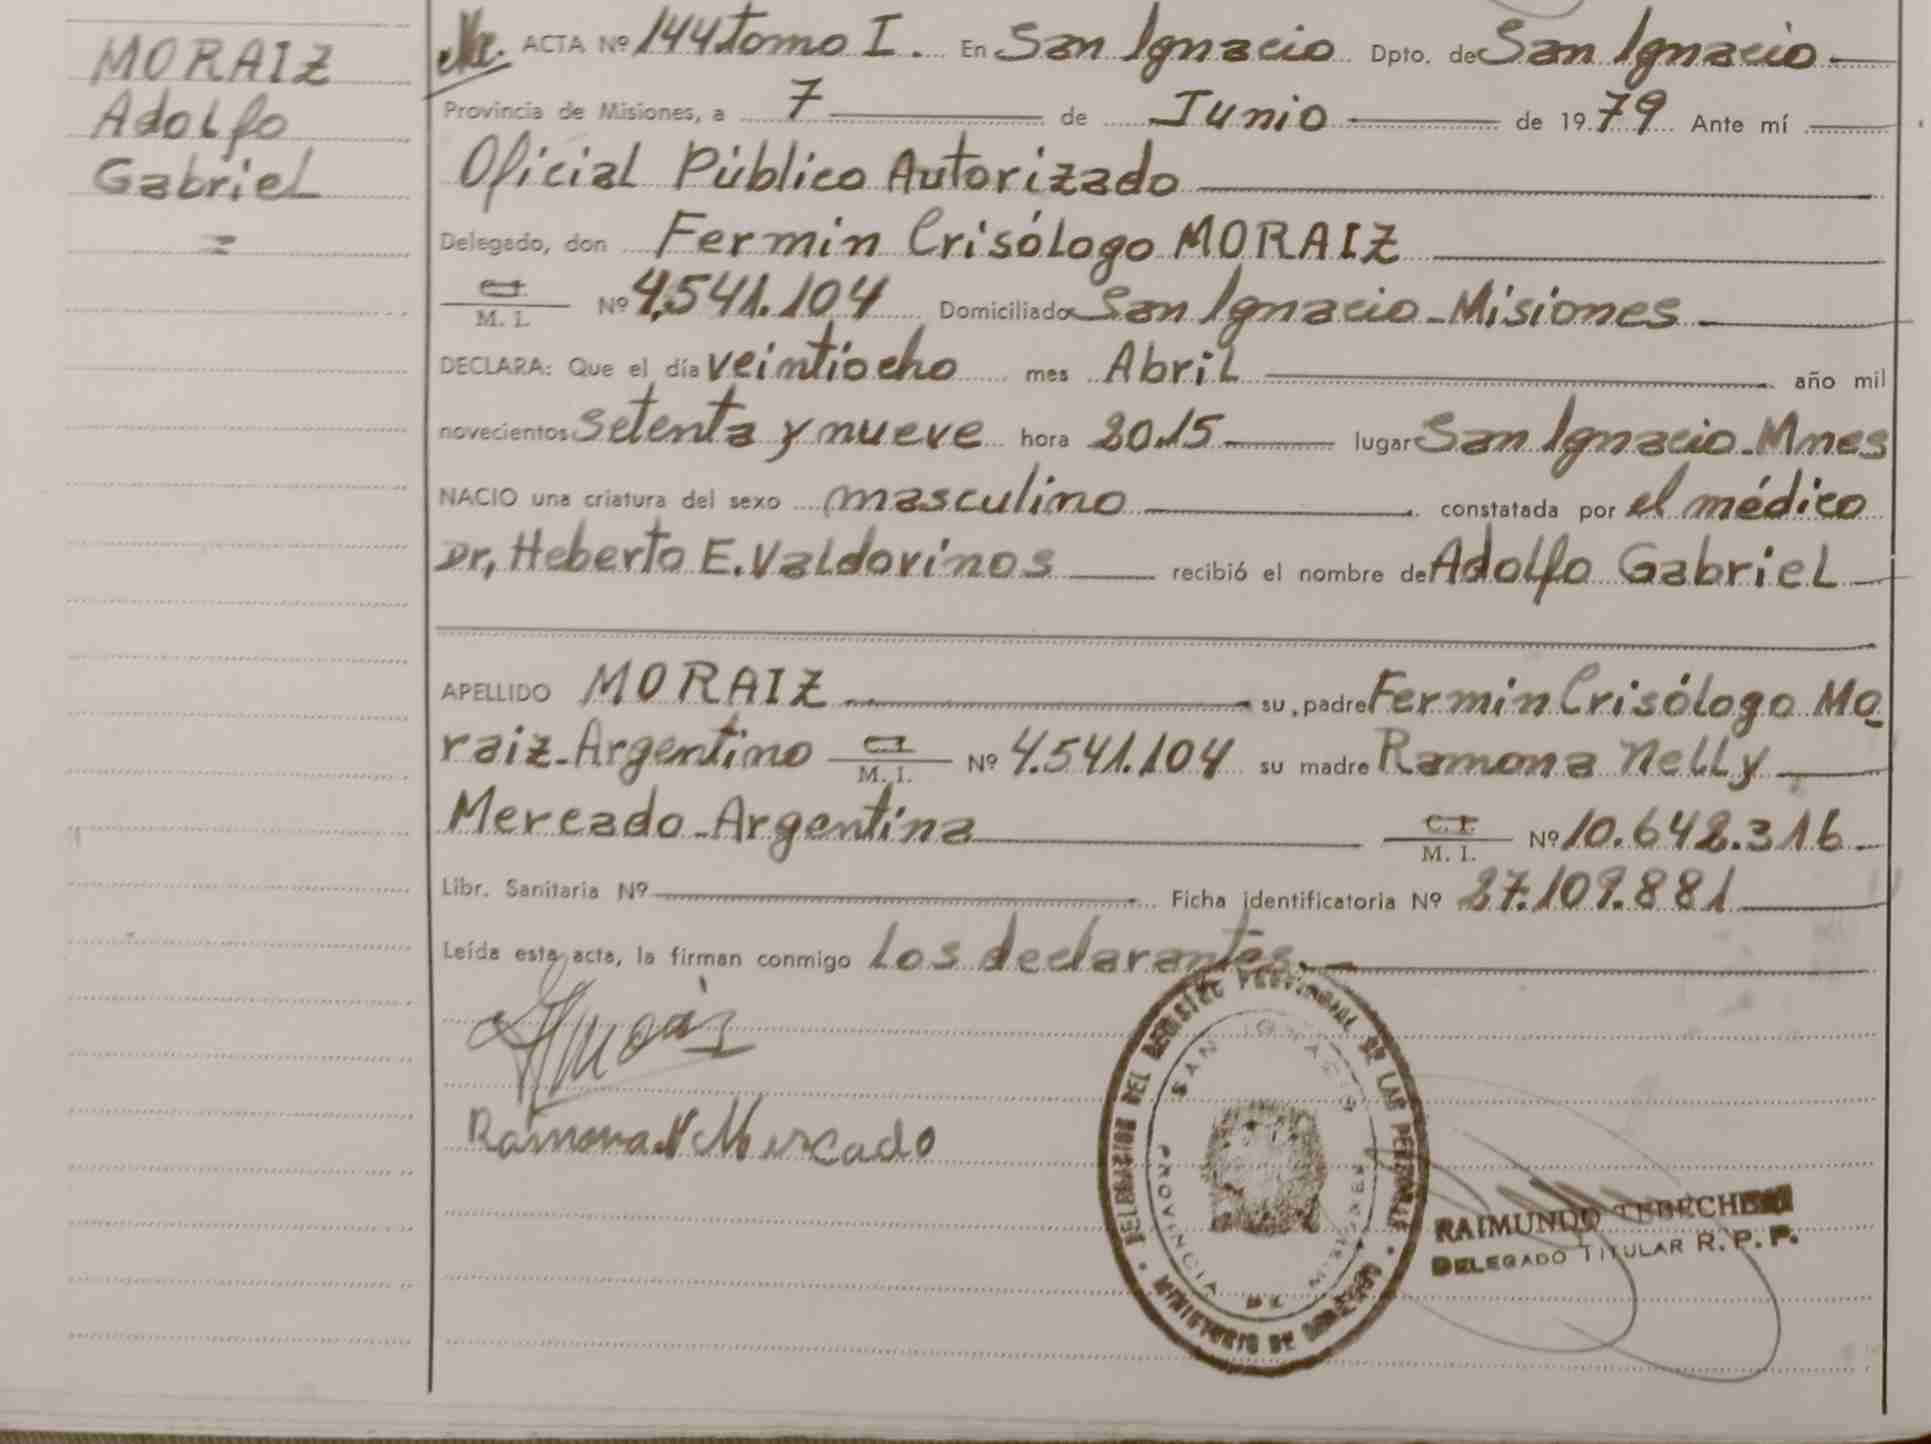 MORAIZ
Adolfo
Gabriel
ACTA Nº 144 Tomo I. En San Ignacio Dpto. de San Ignacio
Provincia de Misiones, a 7 de Junio de 1979 Ante mí
Oficial Público Autorizado
Delegado, don Fermin Crisólogo MORAIZ
C.I. M. I. Nº 4,541.104 Domiciliado San Ignacio - Misiones
DECLARA: Que el día veintiocho mes Abril año mil
novecientos setenta y nueve hora 20.15 lugar San Ignacio - Mnes
NACIO una criatura del sexo masculino constatada por el médico
Dr, Heberto E. Valdovinos recibió el nombre de Adolfo Gabriel
APELLIDO MORAIZ su padre Fermin Crisólogo Mo
raiz - Argentino C.I. M. I. Nº 4.541.104 su madre Ramona Nelly
Mercado - Argentina C. I. M. I. Nº 10.642.316
Libr. Sanitaria Nº Ficha identificatoria Nº 27.109.881
Leída esta acta, la firman conmigo los declarantes.
Ramona N Mercado
DEL REGISTRO PROVINCIAL DE LAS PERSONAS
SAN IGNACIO
PROVINCIA DE MISIONES
MINISTERIO DE GOBIERNO
RAIMUNDO
DELEGADO TITULAR R. P. P.